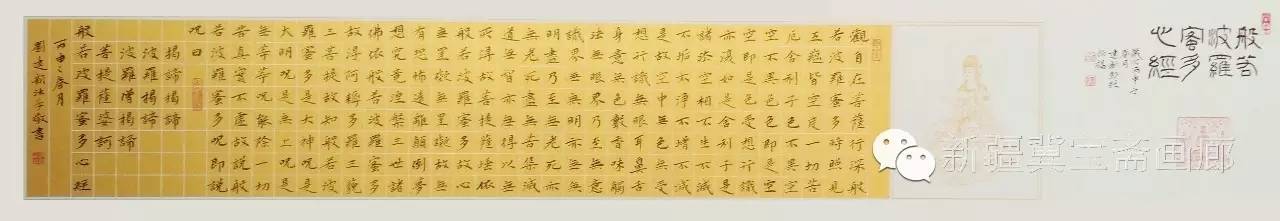 般若
波羅
密多
心經
觀自在菩薩行深般
若波羅蜜多時照見
五蘊皆空度一切苦
厄舍利子色不異空
空不異色色即是空
空即是色受想行識
亦復如是舍利子是
諸法空相不生不滅
不垢不淨不增不減
是故空中無色無受
想行識無眼耳鼻舌
身意無色聲香味觸
法無眼界乃至無意
識界無無明亦無無
明盡乃至無老死亦
無老死盡無苦集滅
道無智亦無得以無
所得故菩提薩埵依
般若波羅蜜多故心
無罣礙無罣礙故無
有恐怖遠離顛倒夢
想究竟涅槃三世諸
佛依般若波羅蜜多
故得阿耨多羅三藐
三菩提故知般若波
羅蜜多是大神呪是
大明呪是無上呪是
無等等呪能除一切
苦真實不虛故說般
若波羅蜜多呪即說
呪曰
揭諦揭諦
波羅揭諦
波羅僧揭諦
菩提薩婆訶
般若波羅蜜多心經
丙申之春月
劉建新沐手敬書
新疆冀宝斋画廊